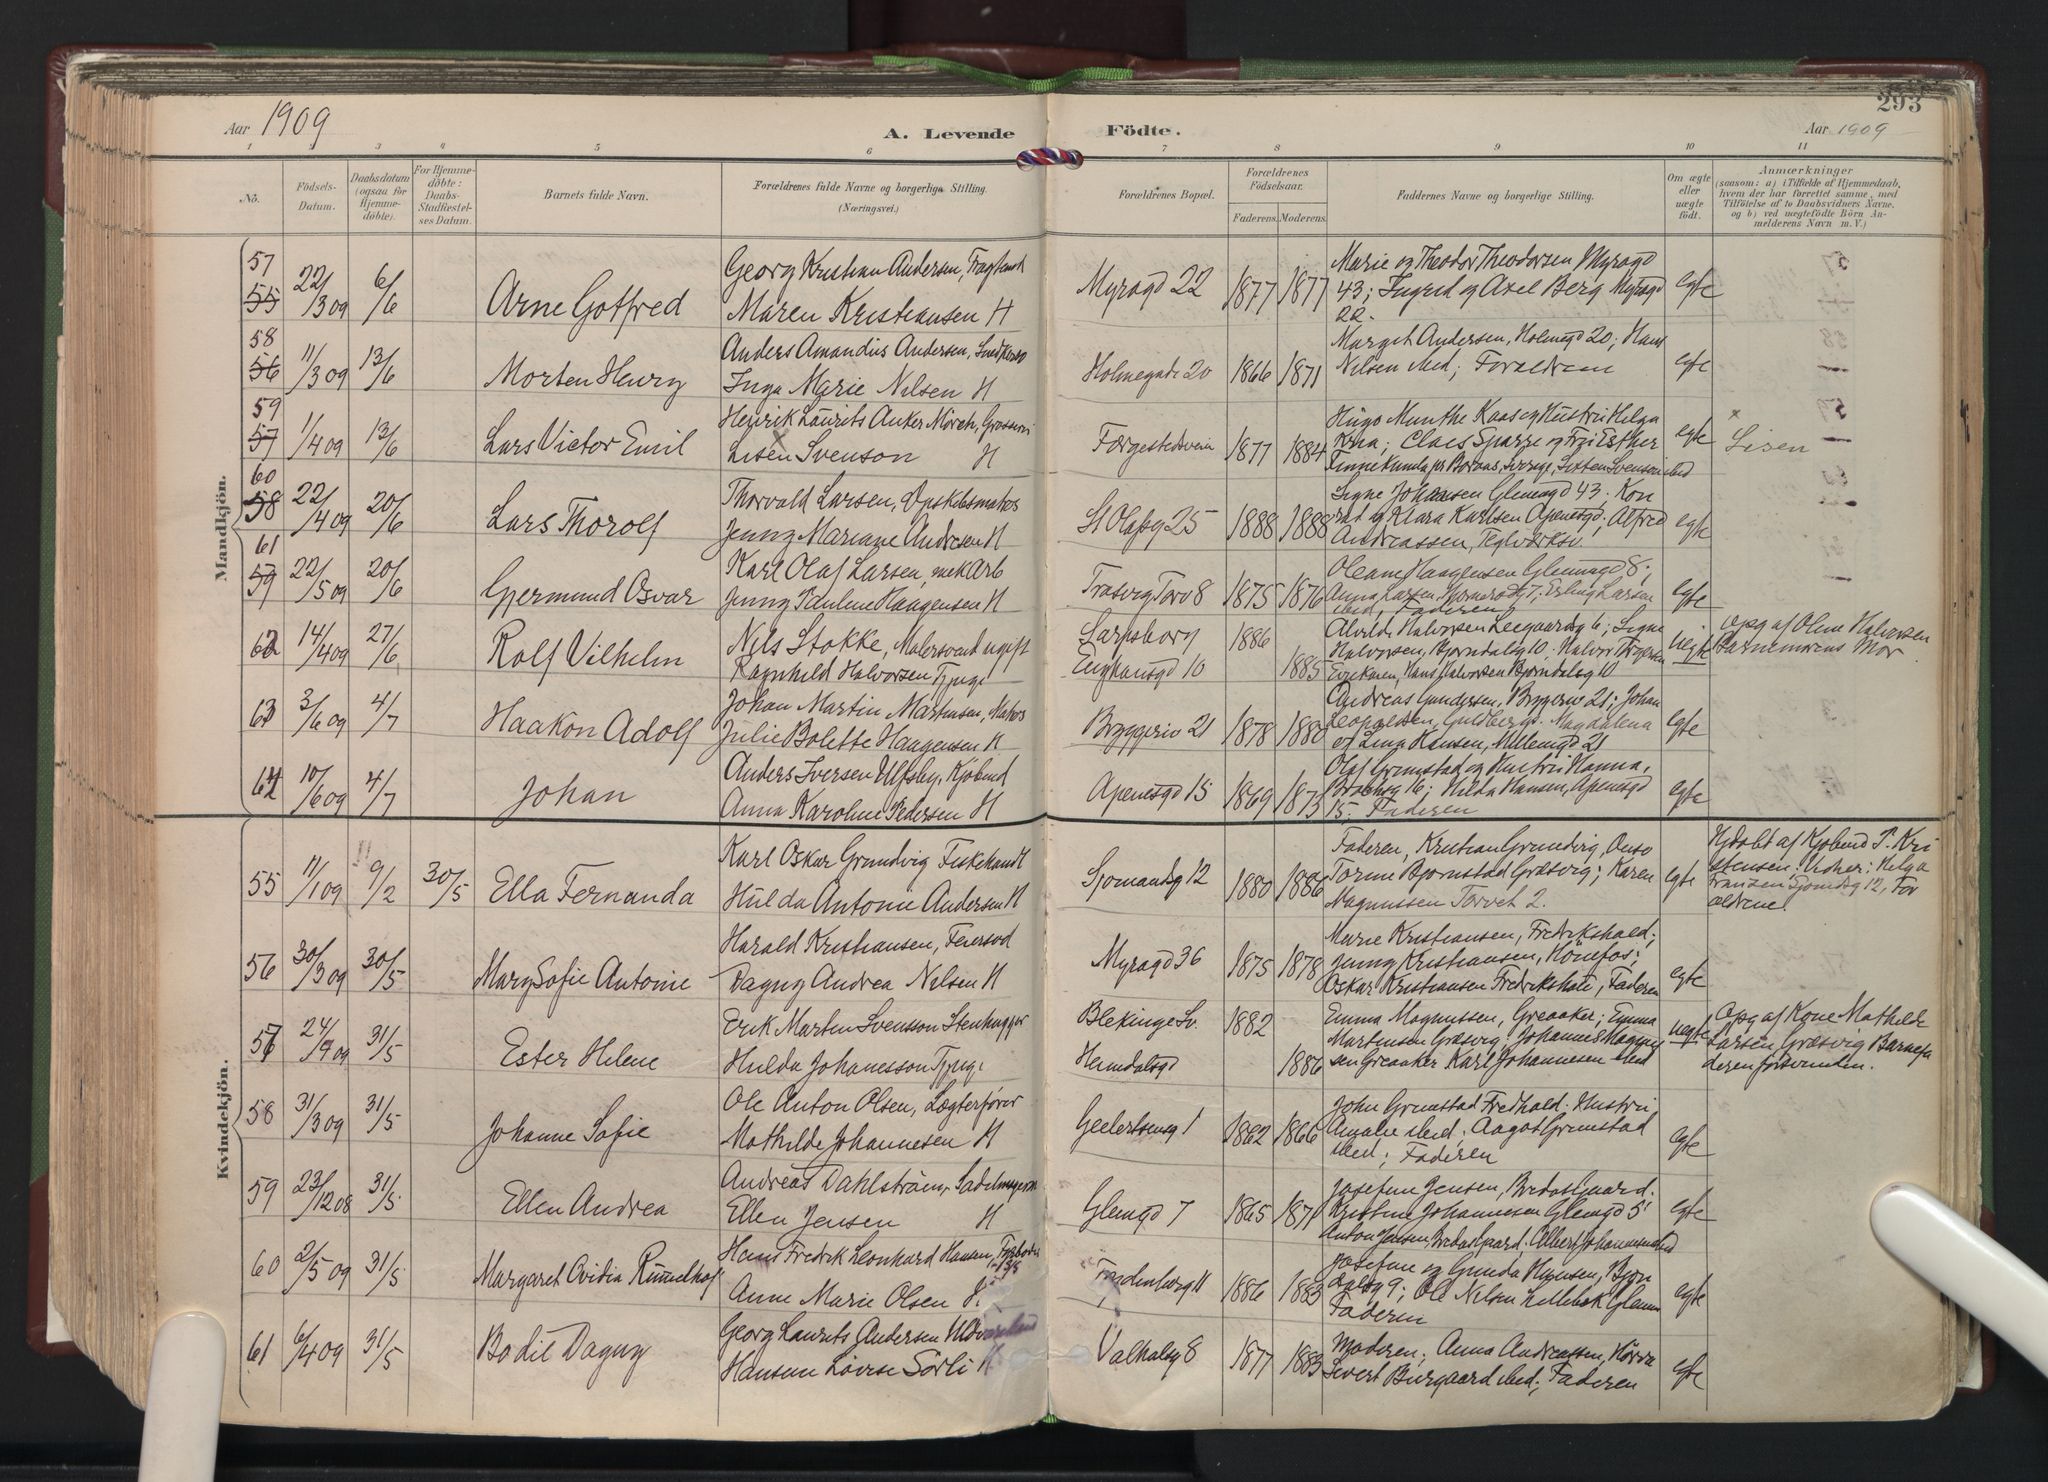 293
Aar 1909
A. Levende
Födte.
Aar 1909
1 2 3 4 5 6 7 8 9 10 11
No.
Födsels-Datum.
Daabsdatum (ogsaa for Hjemmedöbte).
For Hjemmedöbte: Daabs-Stadfæstelses Datum.
Barnets fulde Navn.
Forældrenes fulde Navne og borgerlige Stilling. (Næringsvei.)
Forældrenes Bopæl.
Forældrenes Födselsaar.
Faderens. Moderens.
Faddernes Navne og borgerlige Stilling.
Om ægte eller uægte födt.
Anmærkninger
(saasom: a) i Tilfælde af Hjemmedaab, hvem der har forrettet samme, med Tilföielse af to Daabsvidners Navne, og b) ved uægtefödte Börn Anmelderens Navn m. V.)
Mandkjön.
57 55 22/3 09 6/6 Arne Gotfred
Georg Kristian Andersen,
Maren Kristiansen H
Myragd 22 1877 1877
Marie og Theodor Theodorsen Myragd
43; Ingrid og Axel Berg Myragd
22.
egte
58 56 11/3 09 13/6 Morten Henry
Anders Amandus Andersen,
Inga Marie Nilsen H
Holmegade 20 1866 1871
Margit Andersen, Holmegd 20; Hans
Nilsen ibid; Forældrene
egte
59 57 1/4 09 13/6 Lars Victor Emil
Henrik Laurits Anker Mörch,
Lisen Svenson H
1877 1884
Hugo Munthe Kaas og Hustru Helga
Krha; Claes Sparre og Frii Esther
egte
× Lisen
60 58 22/4 09 20/6 Lars Thorolf
Thorvald Larsen,
Jenny Mariane Andresen H
St Olafsg 25 1888 1888
Signe Johansen Glemmegd 43; Kon
rad og Klara Karlsen Apenesgd; Alfred
Andreassen, Teglverksv.
egte
61 59 22/5 09 20/6 Gjermund Osvar
Karl Olaf Larsen, mek Arb
Jenny Pauline Haagensen H
Trosvig Torv 8 1875 1876
Oleane Haagensen Glemmegd 8;
ibid; Faderen
egte
62 14/4 09 27/6 Rolf Vilhelm
Nils Stokke, Malersvend ugift
Ragnhild Halvorsen Tjpige
Sarpsborg 1886
Enghausgd 10 1885
Halvorsen, Bjorndalsg 10; Halvor Torgersen
Hans Halvorsen Bjorndalsg 10
uegte
opg af Oline Halvorsen
Barnemorens Mor
63 3/6 09 4/7 Haakon Adolf
Johan Martin Martinsen,
Julie Bolette Haagensen H
Bryggeriv 21 1878 1880
Andreas Gundersen, Bryggeriv 21; Johan
Leopoldsen, Guldbergg. Magdalena
og Lina Hansen, Mellemgd 21
egte
64 10/6 09 4/7 Johan
Anders Iversen Ulfsby, Kjöbmd
Anna Karoline Pedersen H
Apenesgd 15 1869 1873
Olaf Grimstad og Hustru Hanna,
16; Hilda Hansen, Apenesgd
15; Faderen
egte
Kvindekjön.
55 11/1 09 9/2 30/5 Ella Fernanda
Karl Oskar Grundvig Fiskehandl
Hulda Antonie Andersen H
Sjomandsg 12 1880 1886
Faderen, Kristian Grundvig, Onso
Torine Bjornstad Græsvig; Karen
Magnussen Torvet 2.
egte
Hjdøbt af Kjøbmd P. Kri
stensen; Vidner: Helga
Fransen Sjomdsg 12, For
ældrene.
56 30/3 09 30/5 Mary Sofie Antonie
Harald Kristiansen, Feiersvd
Dagny Andrea Nilsen H
Myragd 36 1875 1878
Marie Kristiansen, Fredrikshald;
Jenny Kristiansen, Hönefos;
Oskar Kristiansen Fredrikshald, Faderen
egte
57 24/4 09 31/5 Ester Helene
Erik Martin Svensson Stenhugger
Hulda Johanesson Tjpige
Blekinge Sv. 1882
Heimdalsgd 1886
Emma Magnussen, Greaaker; Emma
Martensen Græsvig; Johannes Magnus
sen Greaaker Karl Johannesen ibid
uegte
Opg af Kone Mathilde
Larsen Græsvig Barnefa
deren forsvunden.
58 31/3 09 31/5 Johanne Sofie
Ole Anton Olsen, Lægterförer
Mathilde Johannesen H
Geelertsensg 1 1862 1866
John Grimstad Fredhald; Hustru
Amalie ibid; Aagot Grimstad
ibid; Faderen
egte
59 23/12 08 31/5 Ellen Andrea
Andreas Dahlström, Sadelmager
Ellen Jensen H
Glemgd 7 1865 1871
Josefine Jensen, Bredasgaard;
Kristine Johannesen Glemgd 5;
Anton Jensen, Bredasgaard; Albert Johannesen ibid
egte
60 2/5 09 31/5 Margaret Ovidia Rummelhof
Hans Fredrik Leonhard Hansen,
Anne Marie Olsen H.
1886 1883
Josefine og Gunda Hansen, Bjorn
dalsg 9; Ole Nilsen Lillebæk Glemm
Faderen
egte
61 6/4 09 31/5 Bodil Dagny
Georg Laurits Andersen
Hansine Lovise Sörli H
Valhalsg 8 1877 1883
Moderen; Anna Andreassen,
Sivert Burgaard ibid; Faderen
egte